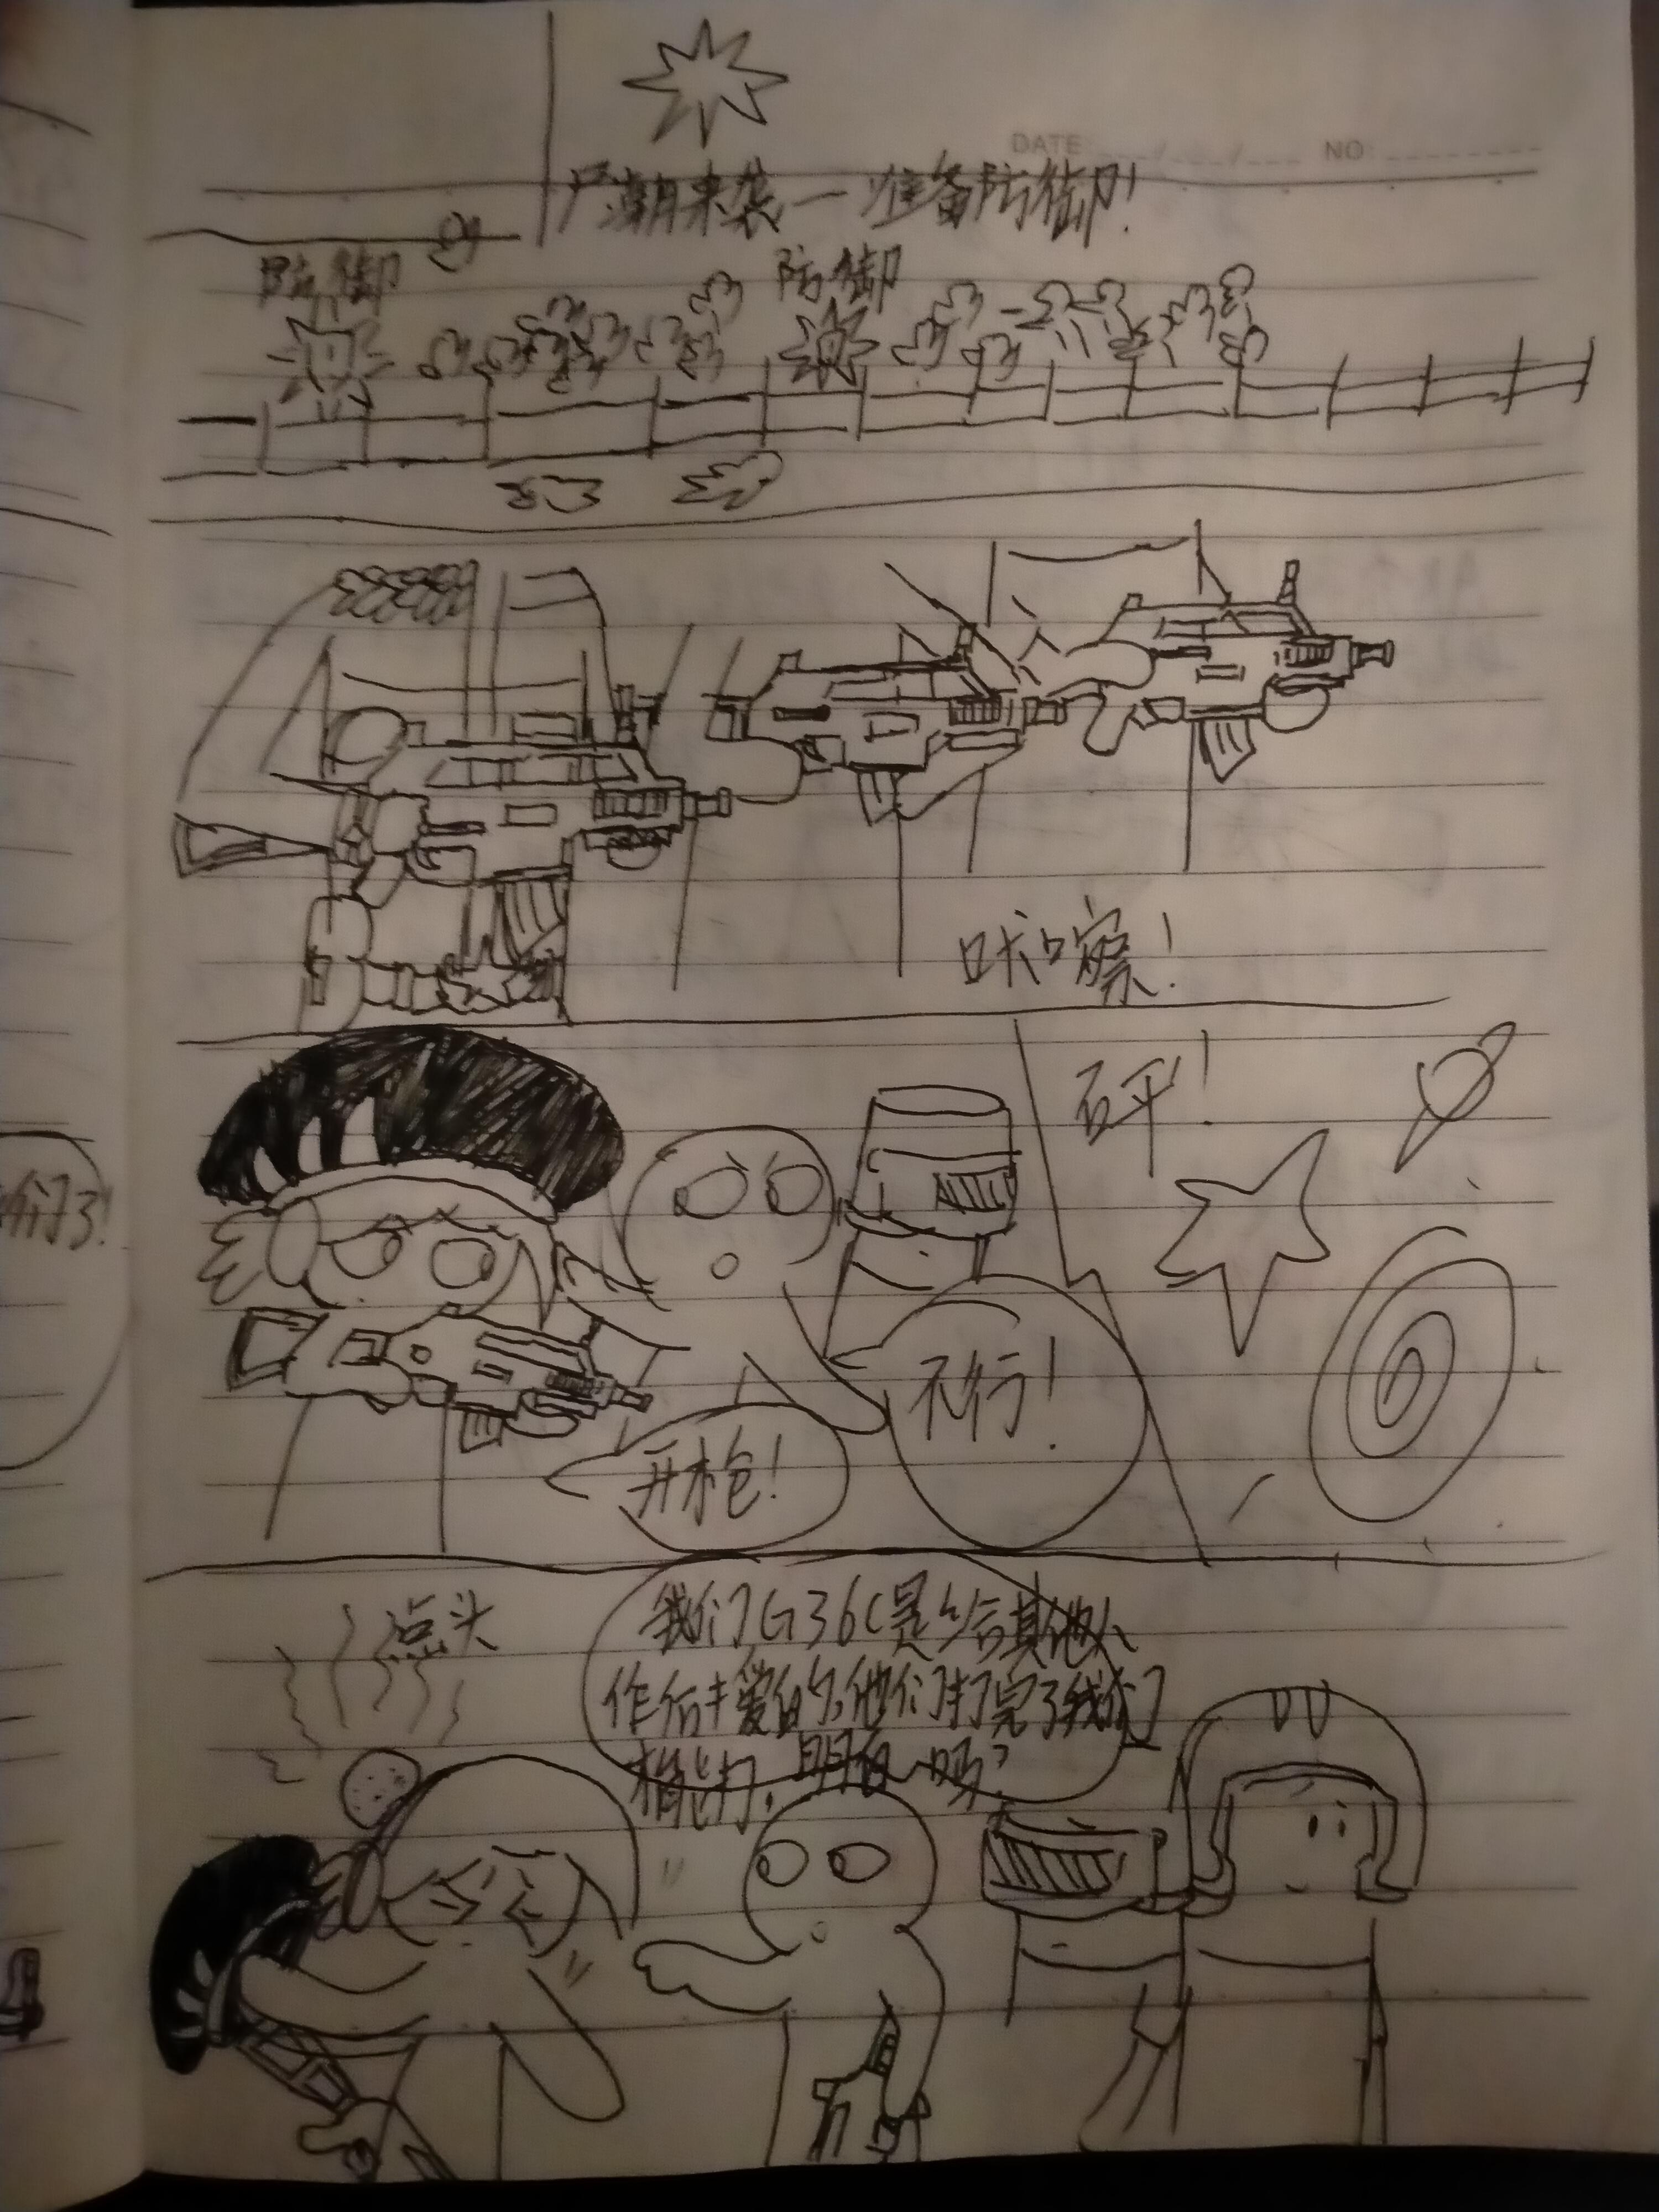 DATE / / NO:
潮来袭一准备防御!
防御
防御
咔嚓!
砰!
不行!
开枪!
们了!
点头
我们G36C是给其他人
作后的,他们打完了我们
才能打,明白吗?